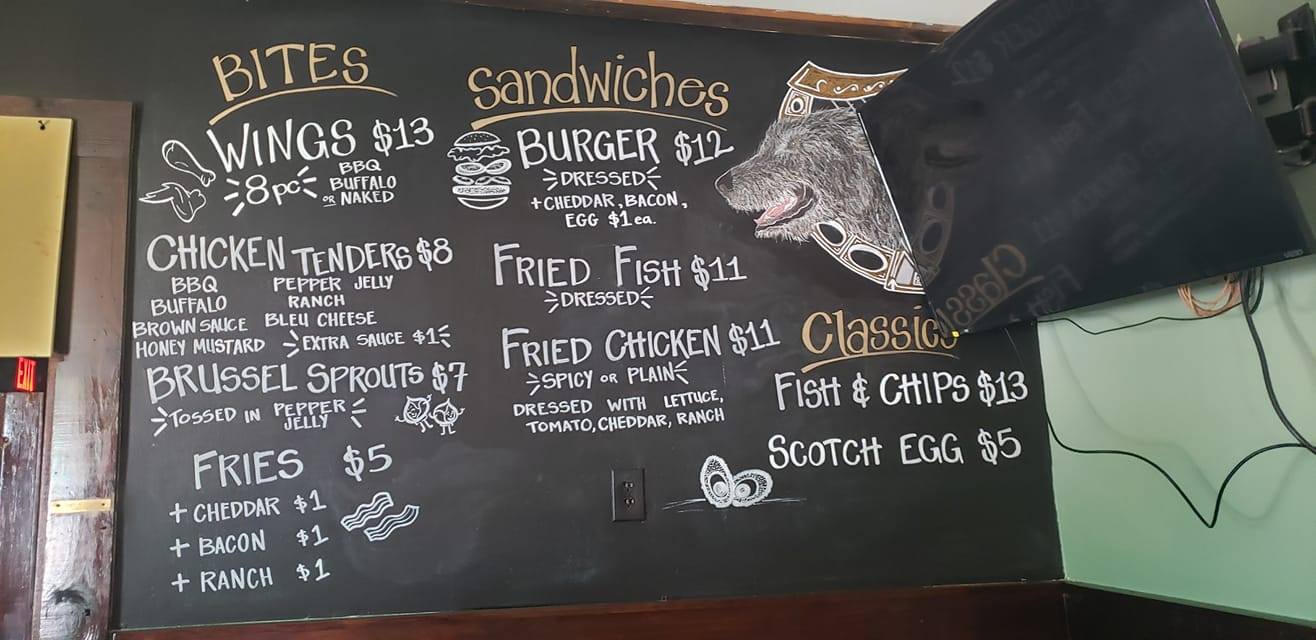 BITES
WINGS $13
8 pc
BBQ
BUFFALO
OR NAKED
CHICKEN TENDERS $8
BBQ
BUFFALO
BROWN SAUCE
HONEY MUSTARD
PEPPER JELLY
RANCH
BLEU CHEESE
EXTRA SAUCE $1
BRUSSEL SPROUTS $7
TOSSED IN PEPPER
JELLY
FRIES $5
+ CHEDDAR $1
+ BACON $1
+ RANCH $1
Sandwiches
BURGER $12
DRESSED
+ CHEDDAR, BACON,
EGG $1 ea.
FRIED FISH $11
DRESSED
FRIED CHICKEN $11
SPICY OR PLAIN
DRESSED WITH LETTUCE,
TOMATO, CHEDDAR, RANCH
Classics
FISH & CHIPS $13
SCOTCH EGG $5
EXIT